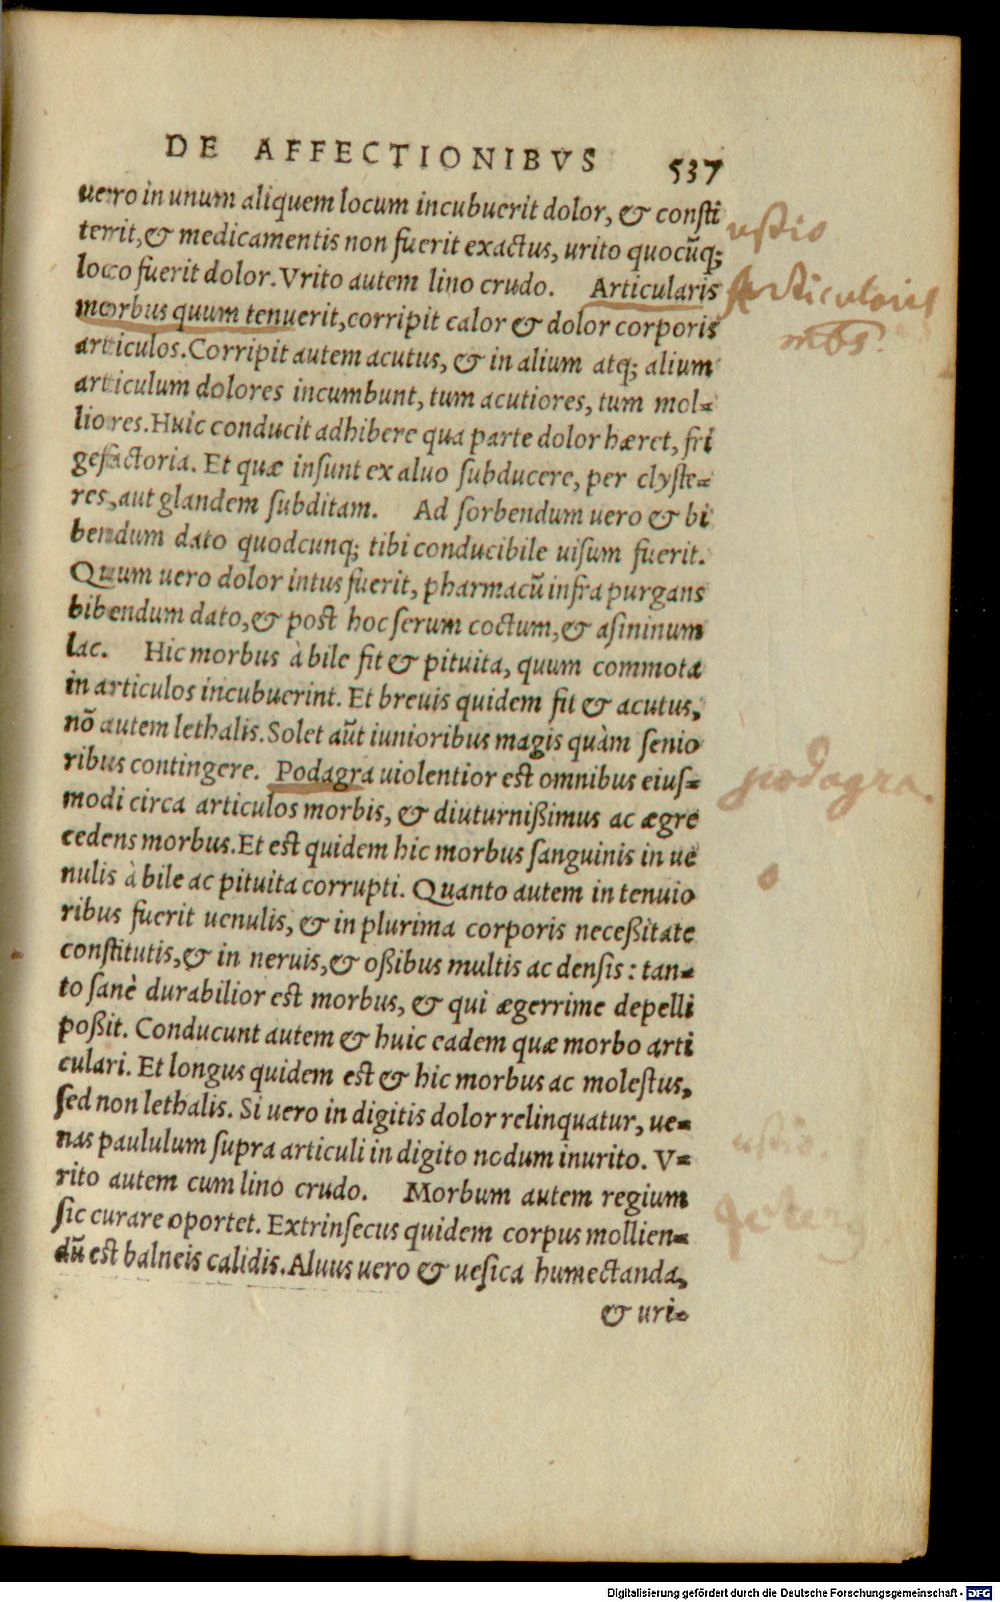 DE AFFECTIONIBVS 537
uero in unum aliquem locum incubuerit dolor, & consti
terit, & medicamentis non fuerit exactus, urito quocũq;
loco fuerit dolor. Vrito autem lino crudo. Articularis
morbus quum tenuerit, corripit calor & dolor corporis
articulos. Corripit autem acutus, & in alium atq; alium
articulum dolores incumbunt, tum acutiores, tum mol-
liores. Huic conducit adhibere qua parte dolor hæret, fri
gefactoria. Et quæ insunt ex aluo subducere, per clyste-
res, aut glandem subditam. Ad sorbendum uero & bi
bendum dato quodcunq; tibi conducibile uisum fuerit.
Quum uero dolor intus fuerit, pharmacũ infra purgans
bibendum dato, & post hoc serum coctum, & asininum
lac. Hic morbus à bile fit & pituita, quum commota
in articulos incubuerint. Et breuis quidem fit & acutus,
nõ autem lethalis. Solet aũt iunioribus magis quàm senio
ribus contingere. Podagra uiolentior est omnibus eius-
modi circa articulos morbis, & diuturnißimus ac ægre
cedens morbus. Et est quidem hic morbus sanguinis in ue
nulis à bile ac pituita corrupti. Quanto autem in tenuio
ribus fuerit uenulis, & in plurima corporis neceßitate
constitutis, & in neruis, & oßibus multis ac densis: tan-
to sanè durabilior est morbus, & qui ægerrime depelli
poßit. Conducunt autem & huic eadem quæ morbo arti
culari. Et longus quidem est & hic morbus ac molestus,
sed non lethalis. Si uero in digitis dolor relinquatur, ue-
nas paululum supra articuli in digito nodum inurito. V-
rito autem cum lino crudo. Morbum autem regium
sic curare oportet. Extrinsecus quidem corpus mollien-
dũ est balneis calidis. Aluus uero & uesica humectanda,
& uri-
ustio
Articularis
mbs.
podagra.
ustio.
Digitalisierung gefördert durch die Deutsche Forschungsgemeinschaft - DFG